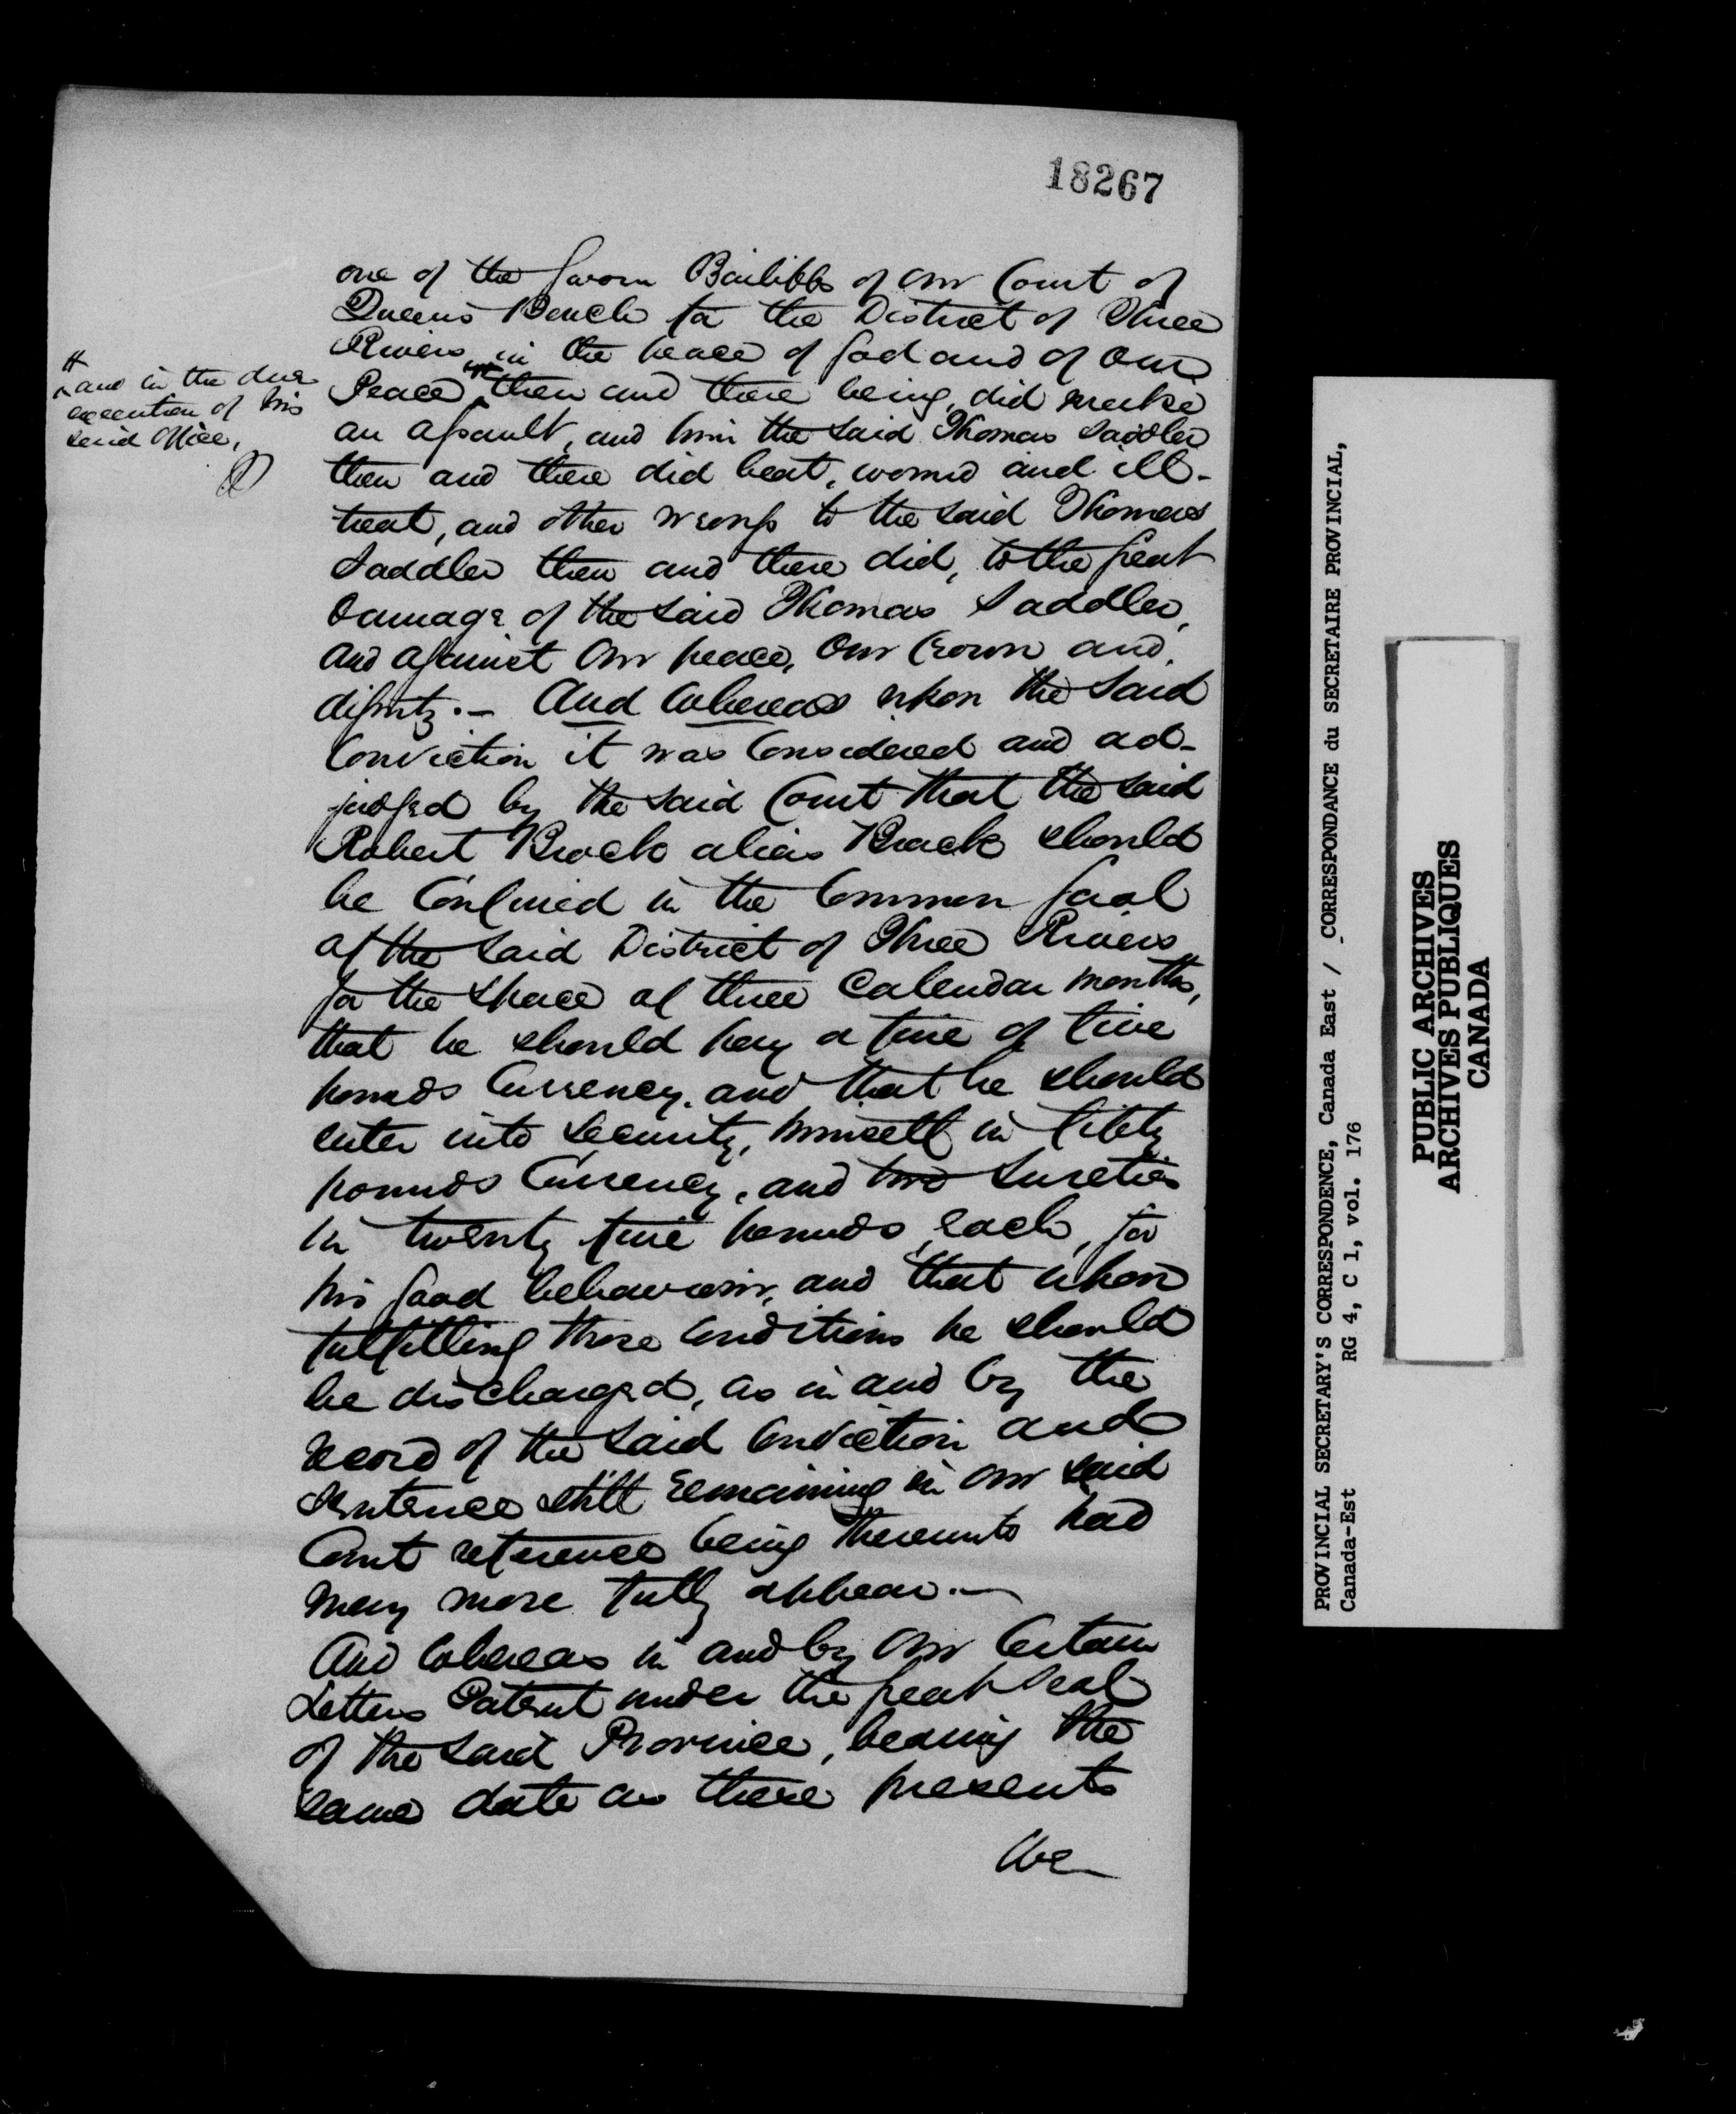 18267
one of the Sworn Bailiffs of our Court of
Queen's Bench for the District of Three
Rivers, in the peace of God and of our
Peace # then and there being, did make
an assault, and him the said Thomas Saddler
then and there did beat, wound and ill-
treat, and other wrongs to the said Thomas
Saddler then and there did, to the great
damage of the said Thomas Saddler,
and against our peace, our Crown and
dignity. — And Whereas upon the said
Conviction it was Considered and ad-
judged by the said Court that the said
Robert Brock alias Brack should
be Confined in the Common Gaol
of the said District of Three Rivers
for the space of three Calendar months,
that he should pay a fine of five
pounds Currency, and that he should
enter into security, himself in fifty
pounds Currency, and two sureties
in twenty five pounds each, for
his good behaviour, and that upon
fulfilling those Conditions he should
be discharged, as in and by the
record of the said Conviction and
sentence still remaining in our said
Court reference being thereunto had
may more fully appear. —
And Whereas in and by our Certain
Letters Patent under the great Seal
of the said Province, bearing the
same date as these presents
We
#
and in the due
execution of his
said Office,
PROVINCIAL SECRETARY'S CORRESPONDENCE, Canada East / CORRESPONDANCE du SECRETAIRE PROVINCIAL,
Canada-Est RG 4, C 1, vol. 176
PUBLIC ARCHIVES
ARCHIVES PUBLIQUES
CANADA